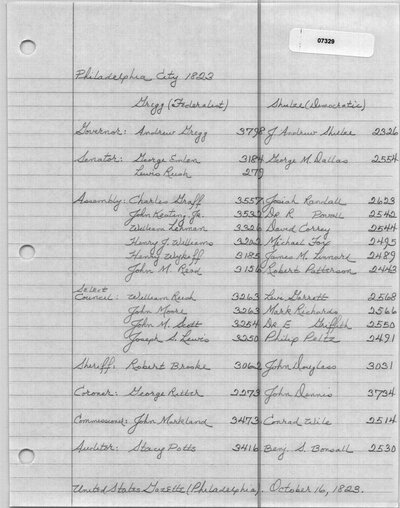 07329
Philadelphia City 1823
Gregg (Federalist) Shulze (Democratic)
Governor: Andrew Gregg 3798 J. Andrew Shulze 2326
Senator: George Emlen 3184 George M. Dallas 2554
Lewis Rush 279
Assembly: Charles Graff 3557 Josiah Randall 2623
John Keating Jr. 3532 Dr. R Povall 2542
William Lehman 3326 David Correy 2544
Henry J. Williams 3202 Michael Fox 2495
Henry Wykoff 3185 James M. Linnard 2489
John M. Read 3126 Robert Patterson 2443
Select
Council: William Rush 3263 Levi Garrett 2568
John Moore 3263 Mark Richards 2566
John M. Scott 3254 Dr. E Griffith 2550
Joseph S. Lewis 3220 Philip Peltz 2491
Sheriff: Robert Brooke 3062 John Douglass 3031
Coroner: George Ritter 2273 John Dennis 3734
Commissioner: John Markland 3473 Conrad Wile 2514
Auditor: Stacy Potts 3416 Benj. S. Bonsall 2530
United States Gazette (Philadelphia). October 16, 1823.